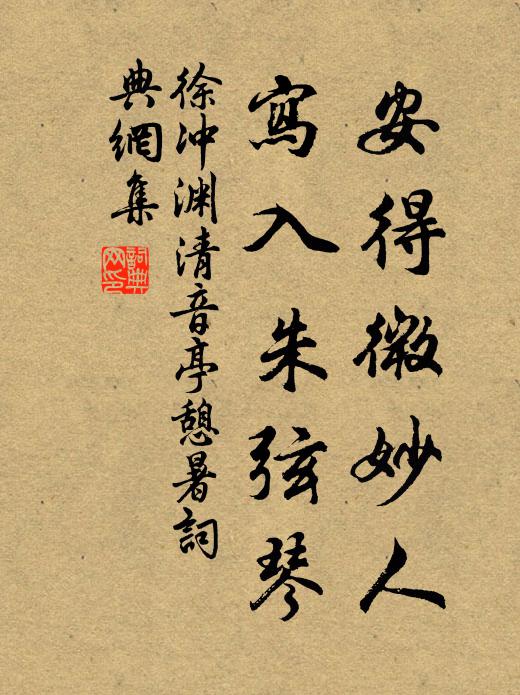 安得微妙人
寫入朱弦琴
徐沖淵清音亭憩暑詞
典網集
詞典網印